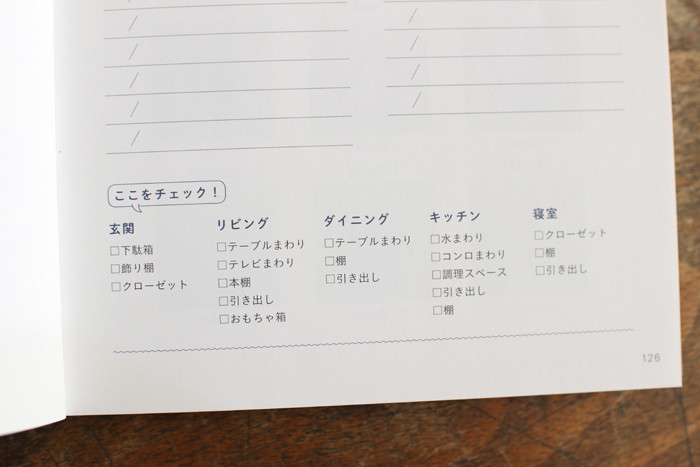 /
/
/
/
/
/
/
/
/
ここをチェック！
玄関
□下駄箱
□飾り棚
□クローゼット
リビング
□テーブルまわり
□テレビまわり
□本棚
□引き出し
□おもちゃ箱
ダイニング
□テーブルまわり
□棚
□引き出し
キッチン
□水まわり
□コンロまわり
□調理スペース
□引き出し
□棚
寝室
□クローゼット
□棚
□引き出し
126